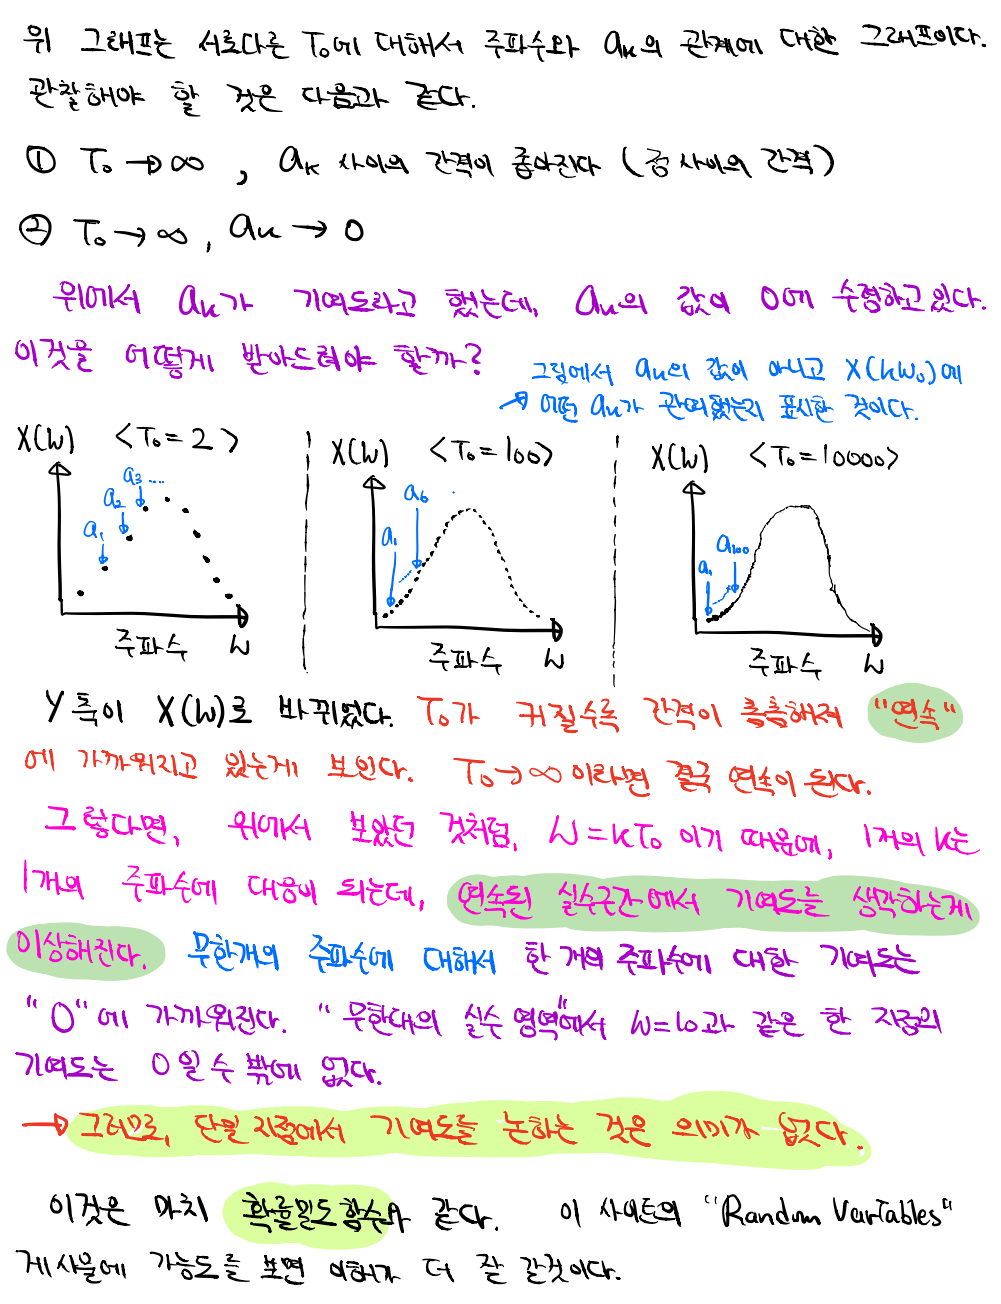 위 그래프는 서로다른 T₀에 대해서 주파수와 aₖ의 관계에 대한 그래프이다.
관찰해야 할 것은 다음과 같다.
① T₀ → ∞ , aₖ 사이의 간격이 좁아진다 (점 사이의 간격)
② T₀ → ∞ , aₖ → 0
위에서 aₖ가 기여도라고 했는데, aₖ의 값이 0에 수렴하고 있다.
이것을 어떻게 받아드려야 할까?
그림에서 aₖ의 값이 아니고 X(kω₀)에
→ 어떤 aₖ가 관여했는지 표시한 것이다.
X(ω) <T₀=2>
a₁ a₂ a₃ ....
주파수 ω
X(ω) <T₀=100>
a₁ ..... a₆
주파수 ω
X(ω) <T₀=10000>
a₁ ..... a₁₀₀
주파수 ω
Y축이 X(ω)로 바뀌었다. T₀가 커질수록 간격이 촘촘해져 "연속"
에 가까워지고 있는게 보인다. T₀→∞이라면 결국 연속이 된다.
그렇다면, 위에서 보았던 것처럼, ω=kT₀ 이기 때문에, 1개의 k는
1개의 주파수에 대응이 되는데, 연속된 실수구간에서 기여도를 생각하는게
이상해진다. 무한개의 주파수에 대해서 한 개의 주파수에 대한 기여도는
"0"에 가까워진다. "무한대의 실수 영역"에서 ω=10과 같은 한 지점의
기여도는 0일 수 밖에 없다.
→ 그러므로, 단일 지점에서 기여도를 논하는 것은 의미가 없다.
이것은 마치 확률밀도함수와 같다. 이 사이트의 "Random Variables"
게시물에 가능도를 보면 이해가 더 잘 갈것이다.